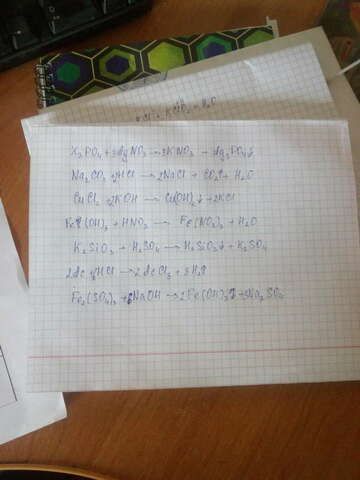 Cl₂ + KClO₃ + H₂O
K₃PO₄ + 3AgNO₃ → 3KNO₃ + Ag₃PO₄↓
Na₂CO₃ + 2HCl → 2NaCl + CO₂↑ + H₂O
CuCl₂ + 2KOH → Cu(OH)₂↓ + 2KCl
Fe(OH)₃ + HNO₃ → Fe(NO₃)₃ + H₂O
K₂SiO₃ + H₂SO₄ → H₂SiO₃↓ + K₂SO₄
2Al + 6HCl → 2AlCl₃ + 3H₂↑
Fe₂(SO₄)₃ + 6NaOH → 2Fe(OH)₃↓ + 3Na₂SO₄